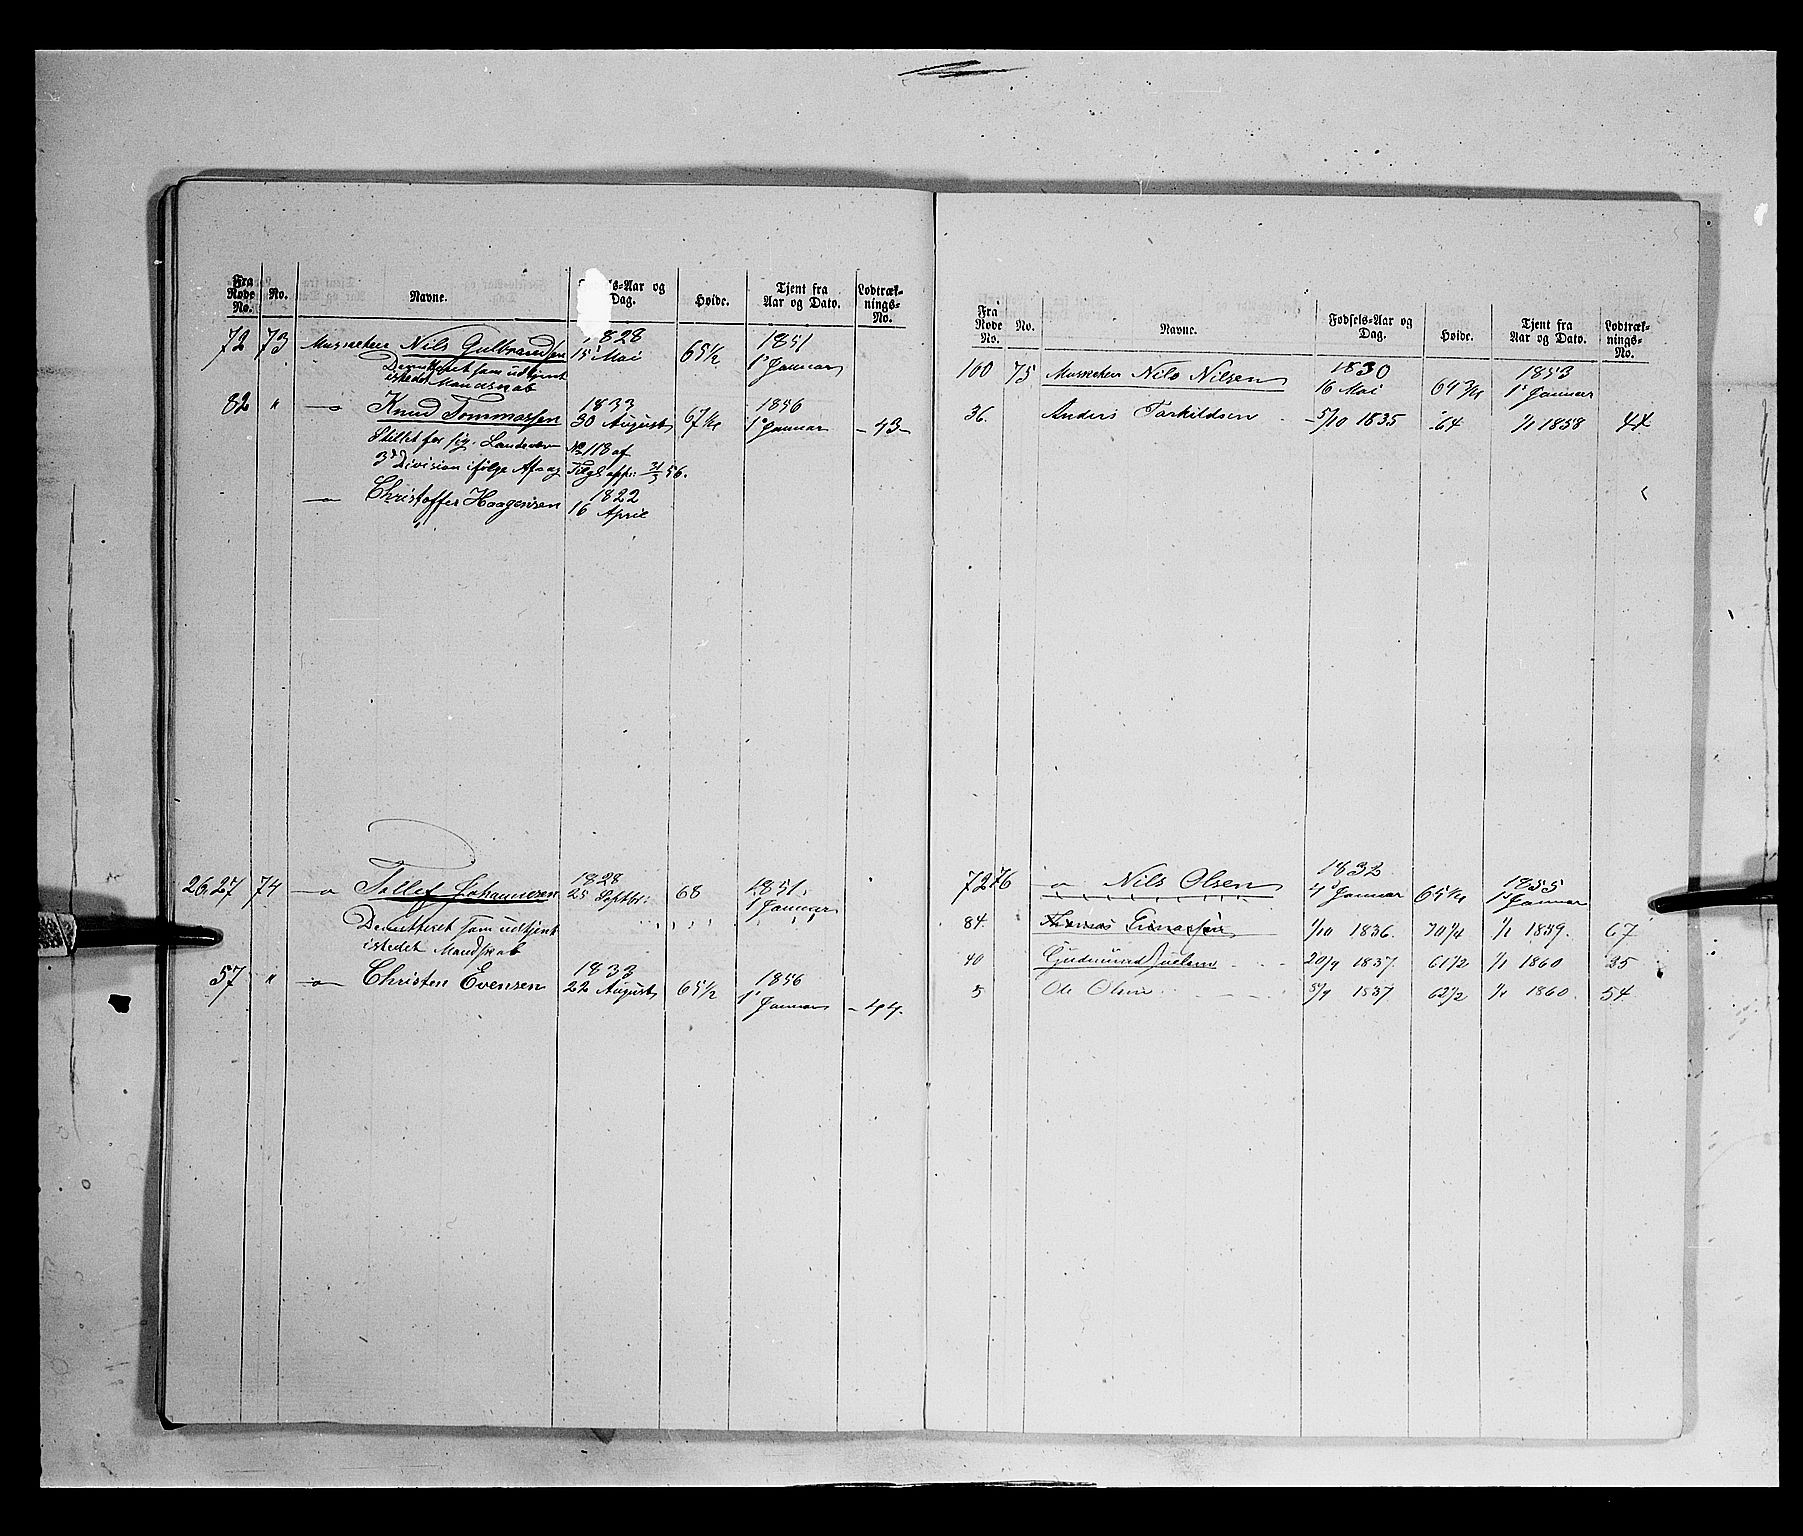 Fra Rode No. No. Navne. Fødsels-Aar og Dag. Høide. Tjent fra Aar og Dato. Lodtræk-nings-No.
72 73 Musketeer Nils Gulbrandsen 1828 15 Mai 65½ 1851 1 Januar
Demitteret som udtjent
istedet Mandskab
82 " —o Knud Tommassen 1833 30 August 67¼ 1856 1 Januar - 43 -
Stillet for sig. Landeværn No 118 af
3d Division ifølge Afgang
—o Christoffer Haagensen 1822 16 April
26.27 74 —o Tollef Johannesen 1828 25 Septbr: 68 1851. 1 Januar
Demitteret som udtjent
istedet Mandskab
57 " —o Christen Evensen 1833 22 August 65½ 1856 1 Januar - 44.
Fra Rode No. No. Navne. Fødsels-Aar og Dag. Høide. Tjent fra Aar og Dato. Lodtræk-nings-No.
100 75 Musketeer Nils Nilsen 1830 16 Mai 64¾ 1853 1 Januar
36. Anders Tarkildsen - 5/10 1835 64 1/1 1858 44
72 76 —o Nils Olsen 1832 4 Januar 65¼ 1855 1 Januar
84. Thomas 1/10 1836. 70¼ 1/1 1859. 67
40 Gudmund 20/9 1837. 61½ 1/1 1860 35
5 Ole Olsen 5/9 1837 62½ 1/1 1860. 54